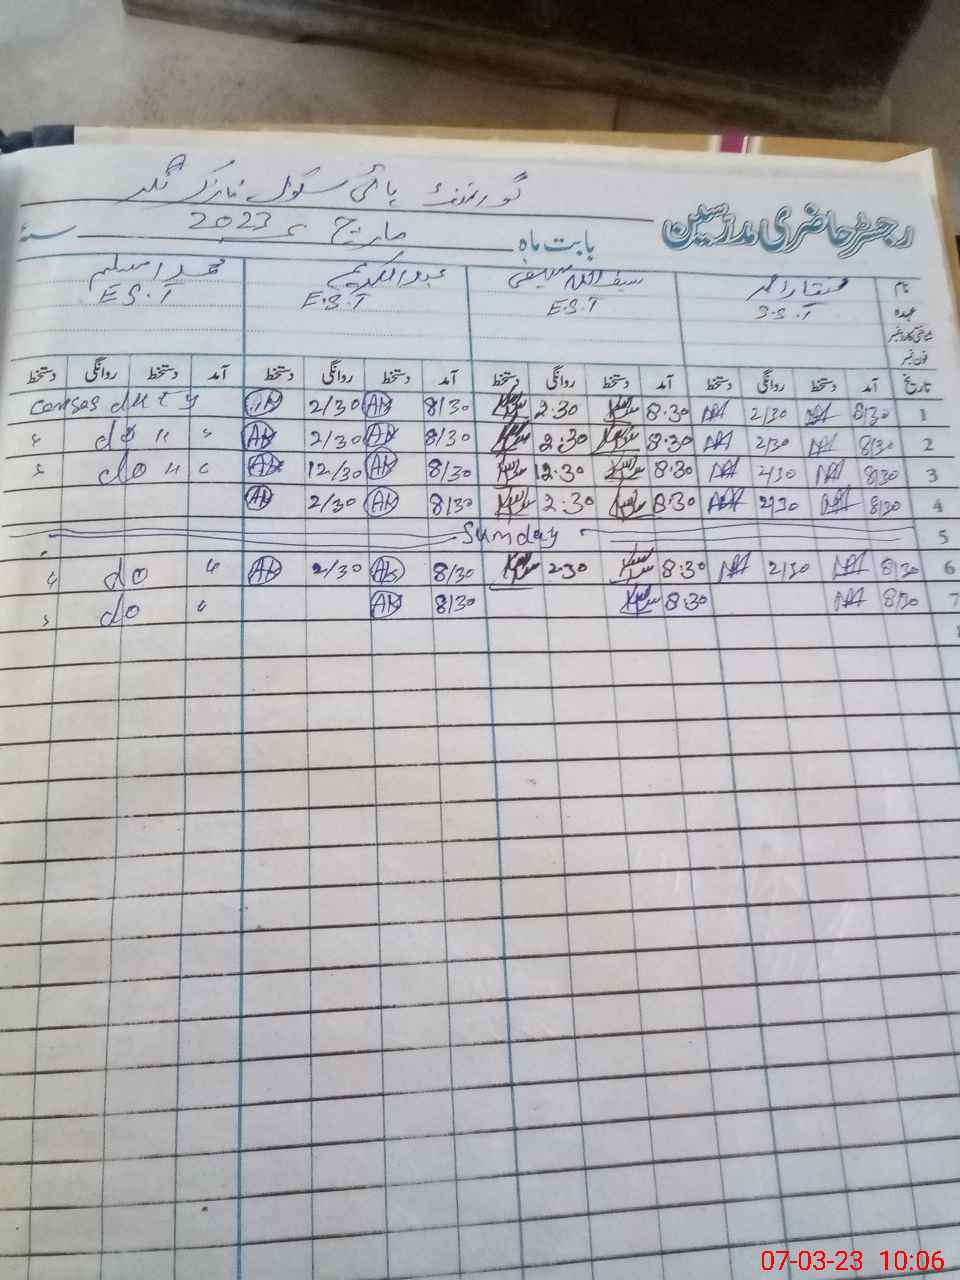 گورنمنٹ ہائی سکول
رجسٹر حاضری مدرسین
بابت ماہ مارچ 2023 سنہ
نام عبدالکریم محمد اسلم
عہدہ S.S.T E.S.T E.S.T E.S.T
شناختی کارڈ نمبر
فون نمبر
تاریخ آمد دستخط روانگی دستخط آمد دستخط روانگی دستخط آمد دستخط روانگی دستخط آمد دستخط روانگی دستخط
1 8/30 2/30 8.30 2.30 8/30 AK 2/30 censas duty
2 8/30 2/30 8.30 2.30 8/30 AK 2/30 AK " do " "
3 8/30 2/30 8.30 12.30 8/30 AK 12/30 AK " do " "
4 8/30 2/30 8.30 2.30 8/30 AK 2/30 AK
5 Sunday
6 8/30 2/30 8.30 2.30 8/30 AK 2/30 AK " do "
7 8/30 8.30 8/30 AK " do "
07-03-23 10:06